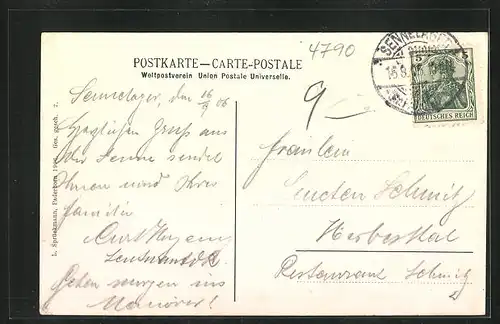 POSTKARTE—CARTE-POSTALE
Weltpostverein Union Postale Universelle.
4790
SENNELAGER
DEUTSCHES REICH
5
Sennelager, den 16/9 06
Herzlichen Gruß aus
der Senne sendet
Ihnen und Ihrer
Familie
Curt
Gehen morgen ins
Manöver!
9
Fräulein
Schmitz
Herbesthal
Restaurant Schmitz
L. Sprückmann, Paderborn 1906. Ges. gesch. 7.